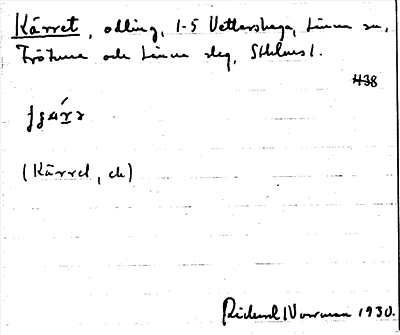 Kärret, odling, 1-5 Vettershaga, Länna sn,
Frötuna och Länna slg, Sthlms l.
438
(Kärret, ck)
Rickard Norman 1930.